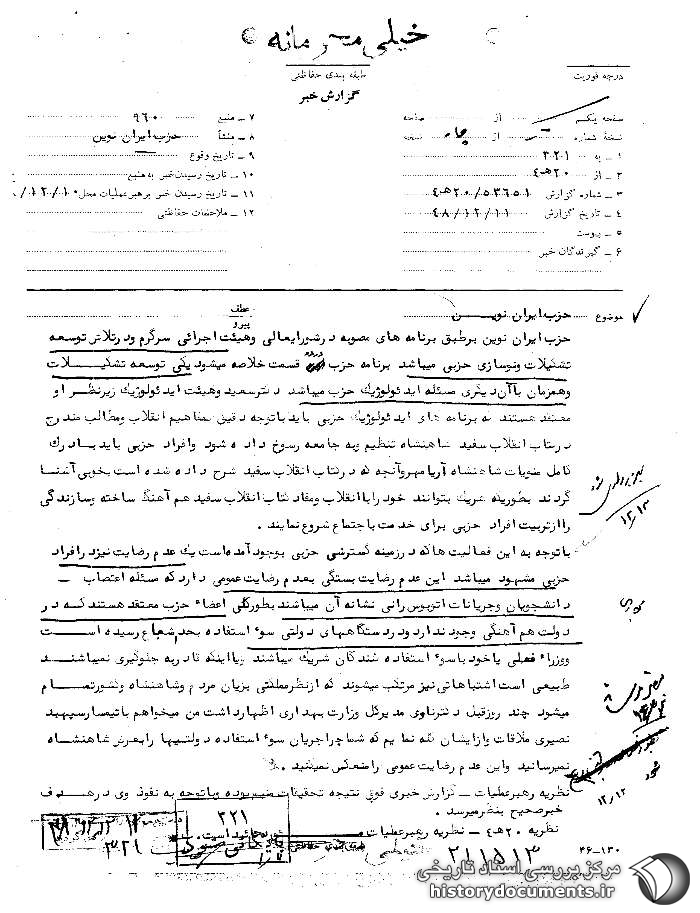 خیلی محرمانه
درجه فوریت
طبقه بندی حفاظتی
گزارش خبر
صفحه یکم از صفحه
نسخه شماره از چهار نسخه
۱ ـ به ۳۲۱
۲ ـ از ۲۰هـ۴
۳ ـ شماره گزارش ۲۰/۵۳۶۵۱هـ۴
۴ ـ تاریخ گزارش ۴۸/۱۲/۱۱
۵ ـ پیوست
۶ ـ گیرندگان خبر
۷ ـ منبع ۹۶۰
۸ ـ منشأ حزب ایران نوین
۹ ـ تاریخ وقوع
۱۰ ـ تاریخ رسیدن خبر به منبع
۱۱ ـ تاریخ رسیدن خبر برهبر عملیات محل /۱۲/۱۰
۱۲ ـ ملاحظات حفاظتی
موضوع حزب ایران نویسن
عطف
پیرو
حزب ایران نوین برطبق برنامه های مصوبه در شورایعالی وهیئت اجرائی سرگرم ودرتلاش توسعه
تشکیلات ونوسازی حزبی میباشد برنامه حزب در دو قسمت خلاصه میشود یکی توسعه تشکیلات
وهمزمان باآن دیگری مسئله ایدئولوژیک حزب میباشد دکترسعید وهیئت ایدئولوژیک زیرنظر او
معتقد هستند که برنامه های ایدئولوژیک حزبی باید باتوجه دقیق بمفاهیم انقلاب ومطالب مندرج
درکتاب انقلاب سفید شاهنشاه تنظیم وبه جامعه رسوخ داده شود وافراد حزبی باید بادرک
کامل منویات شاهنشاه آریامهر وآنچه که درکتاب انقلاب سفید شرح داده شده است بخوبی آشنا
گردند بطوریکه هریک بتوانند خود را باانقلاب ومفاد کتاب انقلاب سفید هم آهنگ ساخته وسازندگی
را از تربیت افراد حزبی برای خدمت باجتماع شروع نمایند .
باتوجه به این فعالیت ها که درزمینه گسترشی حزبی بوجود آمده است یک عدم رضایت نیزد رافراد
حزبی مشهود میباشد این عدم رضایت بستگی بعدم رضایت عمومی دارد که مسئله اعتصاب ـ
دانشجویان وجریانات اتوبوس رانی نشانه آن میباشند بطورکلی اعضاء حزب معتقد هستند که در
دولت هم آهنگی وجود ندارد ودر دستگاههای دولتی سوء استفاده بحد شیاع رسیده است
ووزراء فعلی یا خود باسوء استفاده کنندگان شریک میباشند ویا اینکه قادر به جلوگیری نمیباشند
طبیعی است اشتباهاتی نیز مرتکب میشوند که ازنظر مملکتی بزیان مردم وشاهنشاه وکشورتمام
میشود چند روز قبل دکترناوی مدیرکل وزارت بهداری اظهارداشت من میخواهم باتیمسار سپهبد
نصیری ملاقات وازایشان گله نمایم که شما چرا جریان سوء استفاده دولتیها را بعرض شاهنشاه
نمیرسانید واین عدم رضایت عمومی را منعکس نمیکنید .
نظریه رهبرعملیات ـ گزارش خبری فوق نتیجه تحقیقات منبع بوده وباتوجه به نفوذ وی درهدف
خبر صحیح بنظر میرسد .
نظریه ۲۰هـ۴ ـ نظریه رهبرعملیات
۳۲۱
۳۲۱
۲۱۱۵۱۳
۴۶-۱۳۰
۱۲/۱۳
۱۲/۱۲
مرکز بررسی اسناد تاریخی
historydocuments.ir